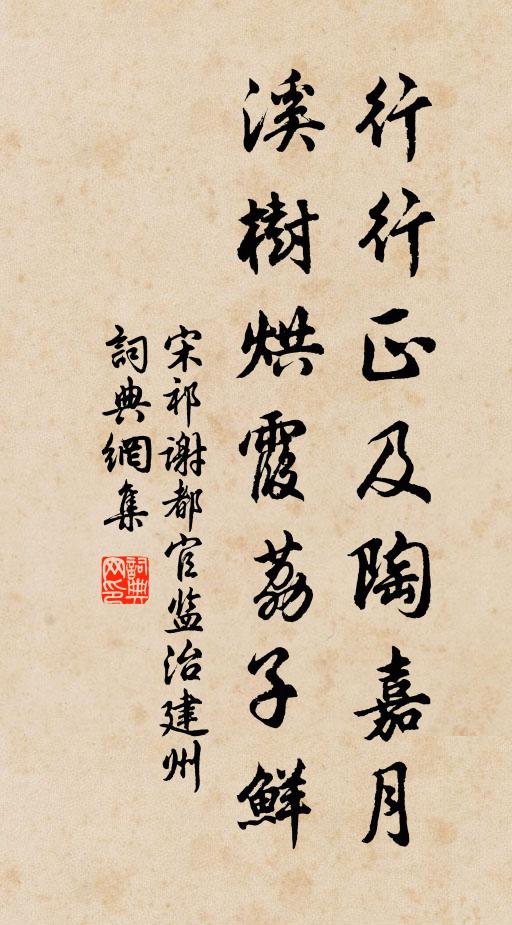 行行正及陶嘉月
溪樹烘霞荔子鮮
宋祁謝都官监治建州
詞典網集
詞典网印